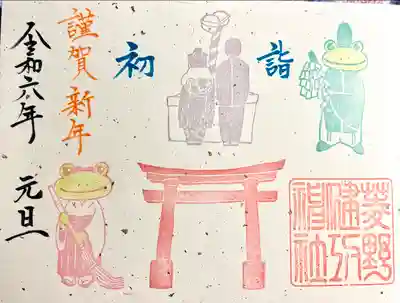 初詣
謹賀新年
令和六年 元旦
菱野
健功
神社